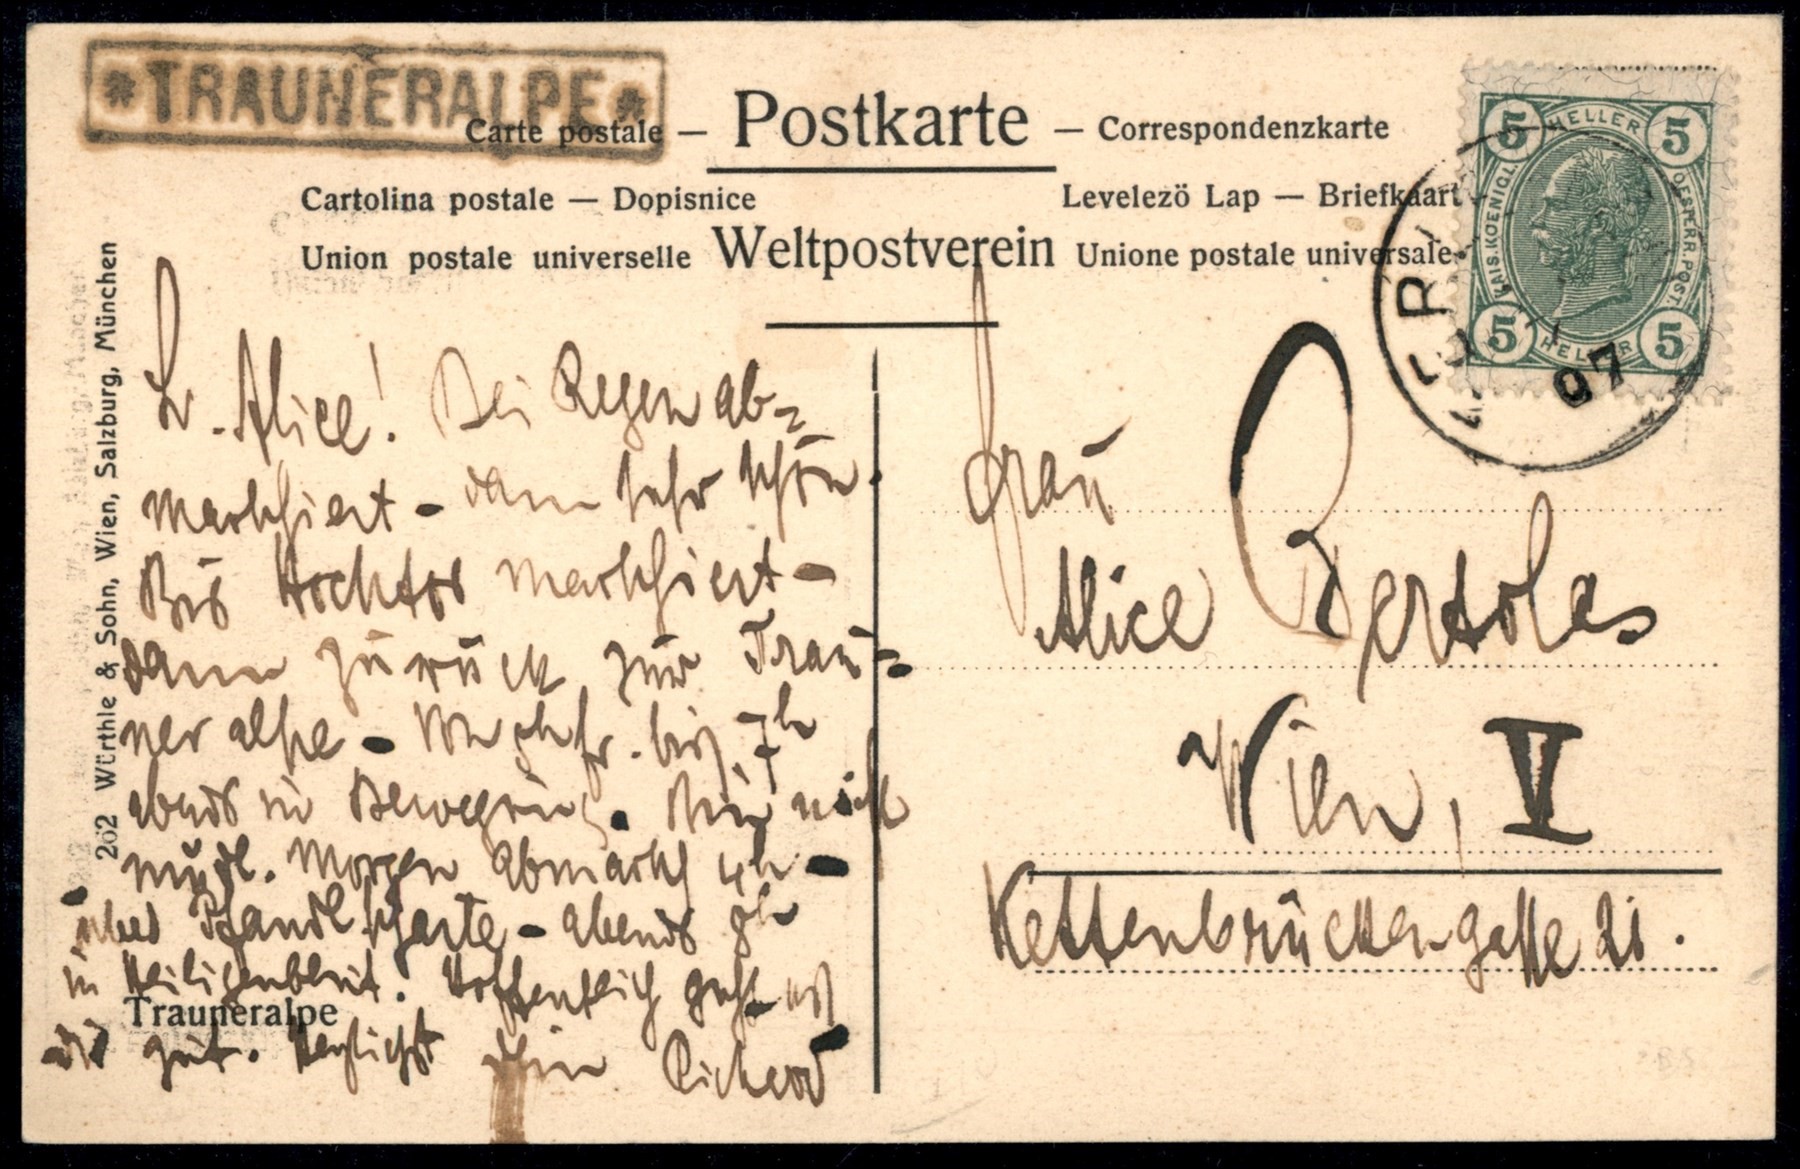 * TRAUNERALPE *
Carte postale — Postkarte — Correspondenzkarte
Cartolina postale — Dopisnice
Levelezö Lap — Briefkaart
Union postale universelle Weltpostverein Unione postale universale
5 HELLER 5
KAIS. KOENIGL. OESTERR. POST.
5 HELLER 5
FERL
07
202 Würthle & Sohn, Wien, Salzburg, München
L. Alice! Bei Regen ab-
marschiert - dann sehr schön.
Bis Hochtor marschiert -
dann zurück zur Trau-
neralpe - bis
abends in Bewegung. Bin nicht
müde. Morgen Abmarsch
über Pfandlscharte - abends
in Heiligenblut. Hoffentlich geht es
Dir gut. Herzlichst Dein Richard
Trauneralpe
Frau
Alice Bertolas
Wien, V
Kettenbrückengasse 21.